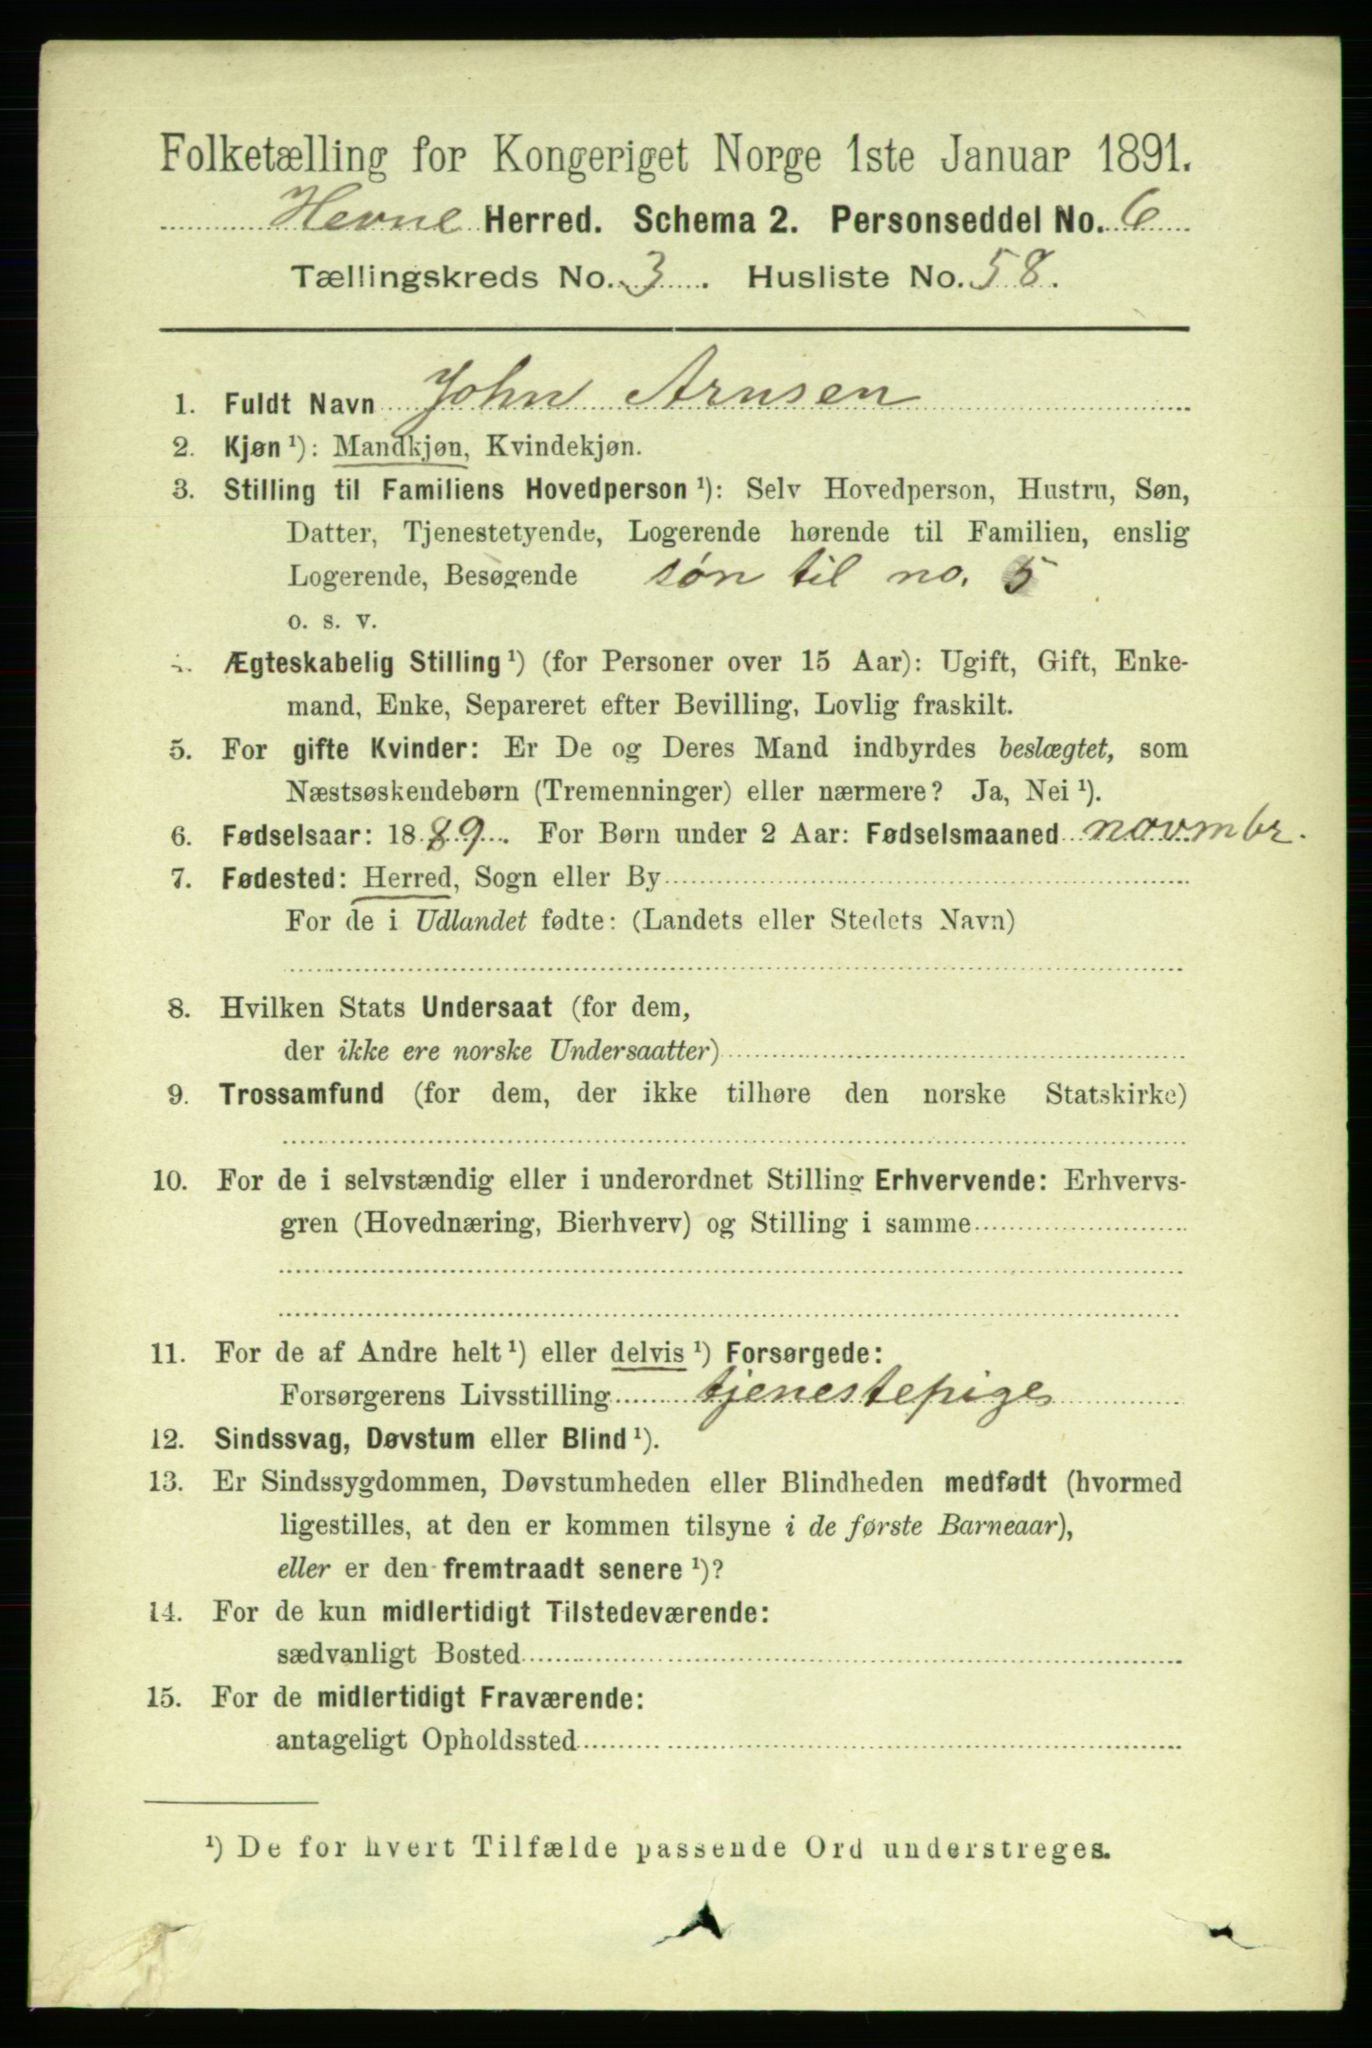 Folketælling for Kongeriget Norge 1ste Januar 1891.
Hevne Herred. Schema 2. Personseddel No. 6
Tællingskreds No. 3. Husliste No. 58.
1. Fuldt Navn John Arnsen
2. Kjøn ¹): Mandkjøn, Kvindekjøn.
3. Stilling til Familiens Hovedperson ¹): Selv Hovedperson, Hustru, Søn,
Datter, Tjenestetyende, Logerende hørende til Familien, enslig
Logerende, Besøgende søn til no. 5
o. s. v.
Ægteskabelig Stilling ¹) (for Personer over 15 Aar): Ugift, Gift, Enke-
mand, Enke, Separeret efter Bevilling, Lovlig fraskilt.
5. For gifte Kvinder: Er De og Deres Mand indbyrdes beslægtet, som
Næstsøskendebørn (Tremenninger) eller nærmere? Ja, Nei ¹).
6. Fødselsaar: 1889. For Børn under 2 Aar: Fødselsmaaned novmbr.
7. Fødested: Herred, Sogn eller By
For de i Udlandet fødte: (Landets eller Stedets Navn)
8. Hvilken Stats Undersaat (for dem,
der ikke ere norske Undersaatter)
9. Trossamfund (for dem, der ikke tilhøre den norske Statskirke)
10. For de i selvstændig eller i underordnet Stilling Erhvervende: Erhvervs-
gren (Hovednæring, Bierhverv) og Stilling i samme
11. For de af Andre helt ¹) eller delvis ¹) Forsørgede:
Forsørgerens Livsstilling tjenestepiges
12. Sindssvag, Døvstum eller Blind ¹).
13. Er Sindssygdommen, Døvstumheden eller Blindheden medfødt (hvormed
ligestilles, at den er kommen tilsyne i de første Barneaar),
eller er den fremtraadt senere ¹)?
14. For de kun midlertidigt Tilstedeværende:
sædvanligt Bosted
15. For de midlertidigt Fraværende:
antageligt Opholdssted
¹) De for hvert Tilfælde passende Ord understreges.